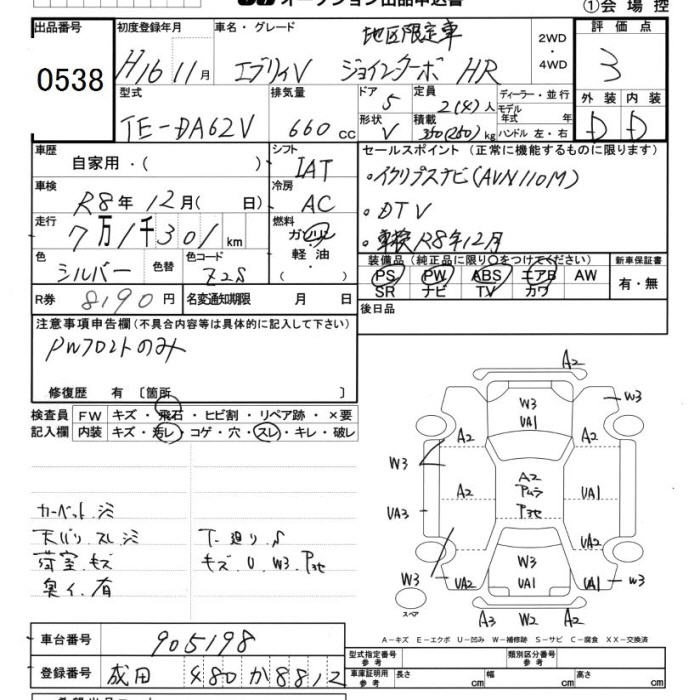 オークション出品申込書
①会場控
出品番号
0538
初度登録年月
H16 11月
車名・グレード
地区限定車
エブリィV ジョインターボ HR
2WD
・
4WD
評価点
3
型式
TE-DA62V
排気量
660 cc
ドア
5
形状
V
定員
2(4)人
積載
350(250)kg
ディーラー・並行
モデル
年式 年
ハンドル 左・右
外装
D
内装
D
車歴
自家用・( )
シフト
IAT
セールスポイント (正常に機能するものに限ります)
・イクリプスナビ(AVN110M)
・DTV
・車検R8年12月
車検
R8年12月( 日)
冷房
AC
走行
7万1千301km
燃料
ガソリン
・軽油・
( )
色
シルバー
色替
色コード
Z2S
装備品 (純正品に限り○をつけてください)
PS PW ABS エアB AW
SR ナビ TV カワ
新車保証書
有・無
R券
8190円
名変通知期限 月 日
後日品
注意事項申告欄(不具合内容等は具体的に記入して下さい)
PW702Tのみ
修復歴 有 〔箇所
検査員
記入欄
FW キズ・飛石・ヒビ割・リペア跡・×要
内装 キズ・汚レ・コゲ・穴・スレ・キレ・破レ
カーペット.シミ
天バリ.スレ.シミ
荷室.キズ
奥イ.有
下廻り.S
キズ.U.W3.Pヨセ
A2
W3
UA1
A2
A2
W3
W3
A2
A2
UA1
UA3
UA2
W3
UA2
W3
UA1
UA2
W3
スペア
A3
W2
A2
A-キズ E-エクボ U-凹み W-補修跡 S-サビ C-腐食 XX-交換済
車台番号
905198
登録番号
成田 480 か 8812
型式指定番号
参考
類別区分番号
参考
車庫証明用
参考
長さ cm
幅 cm
高さ cm